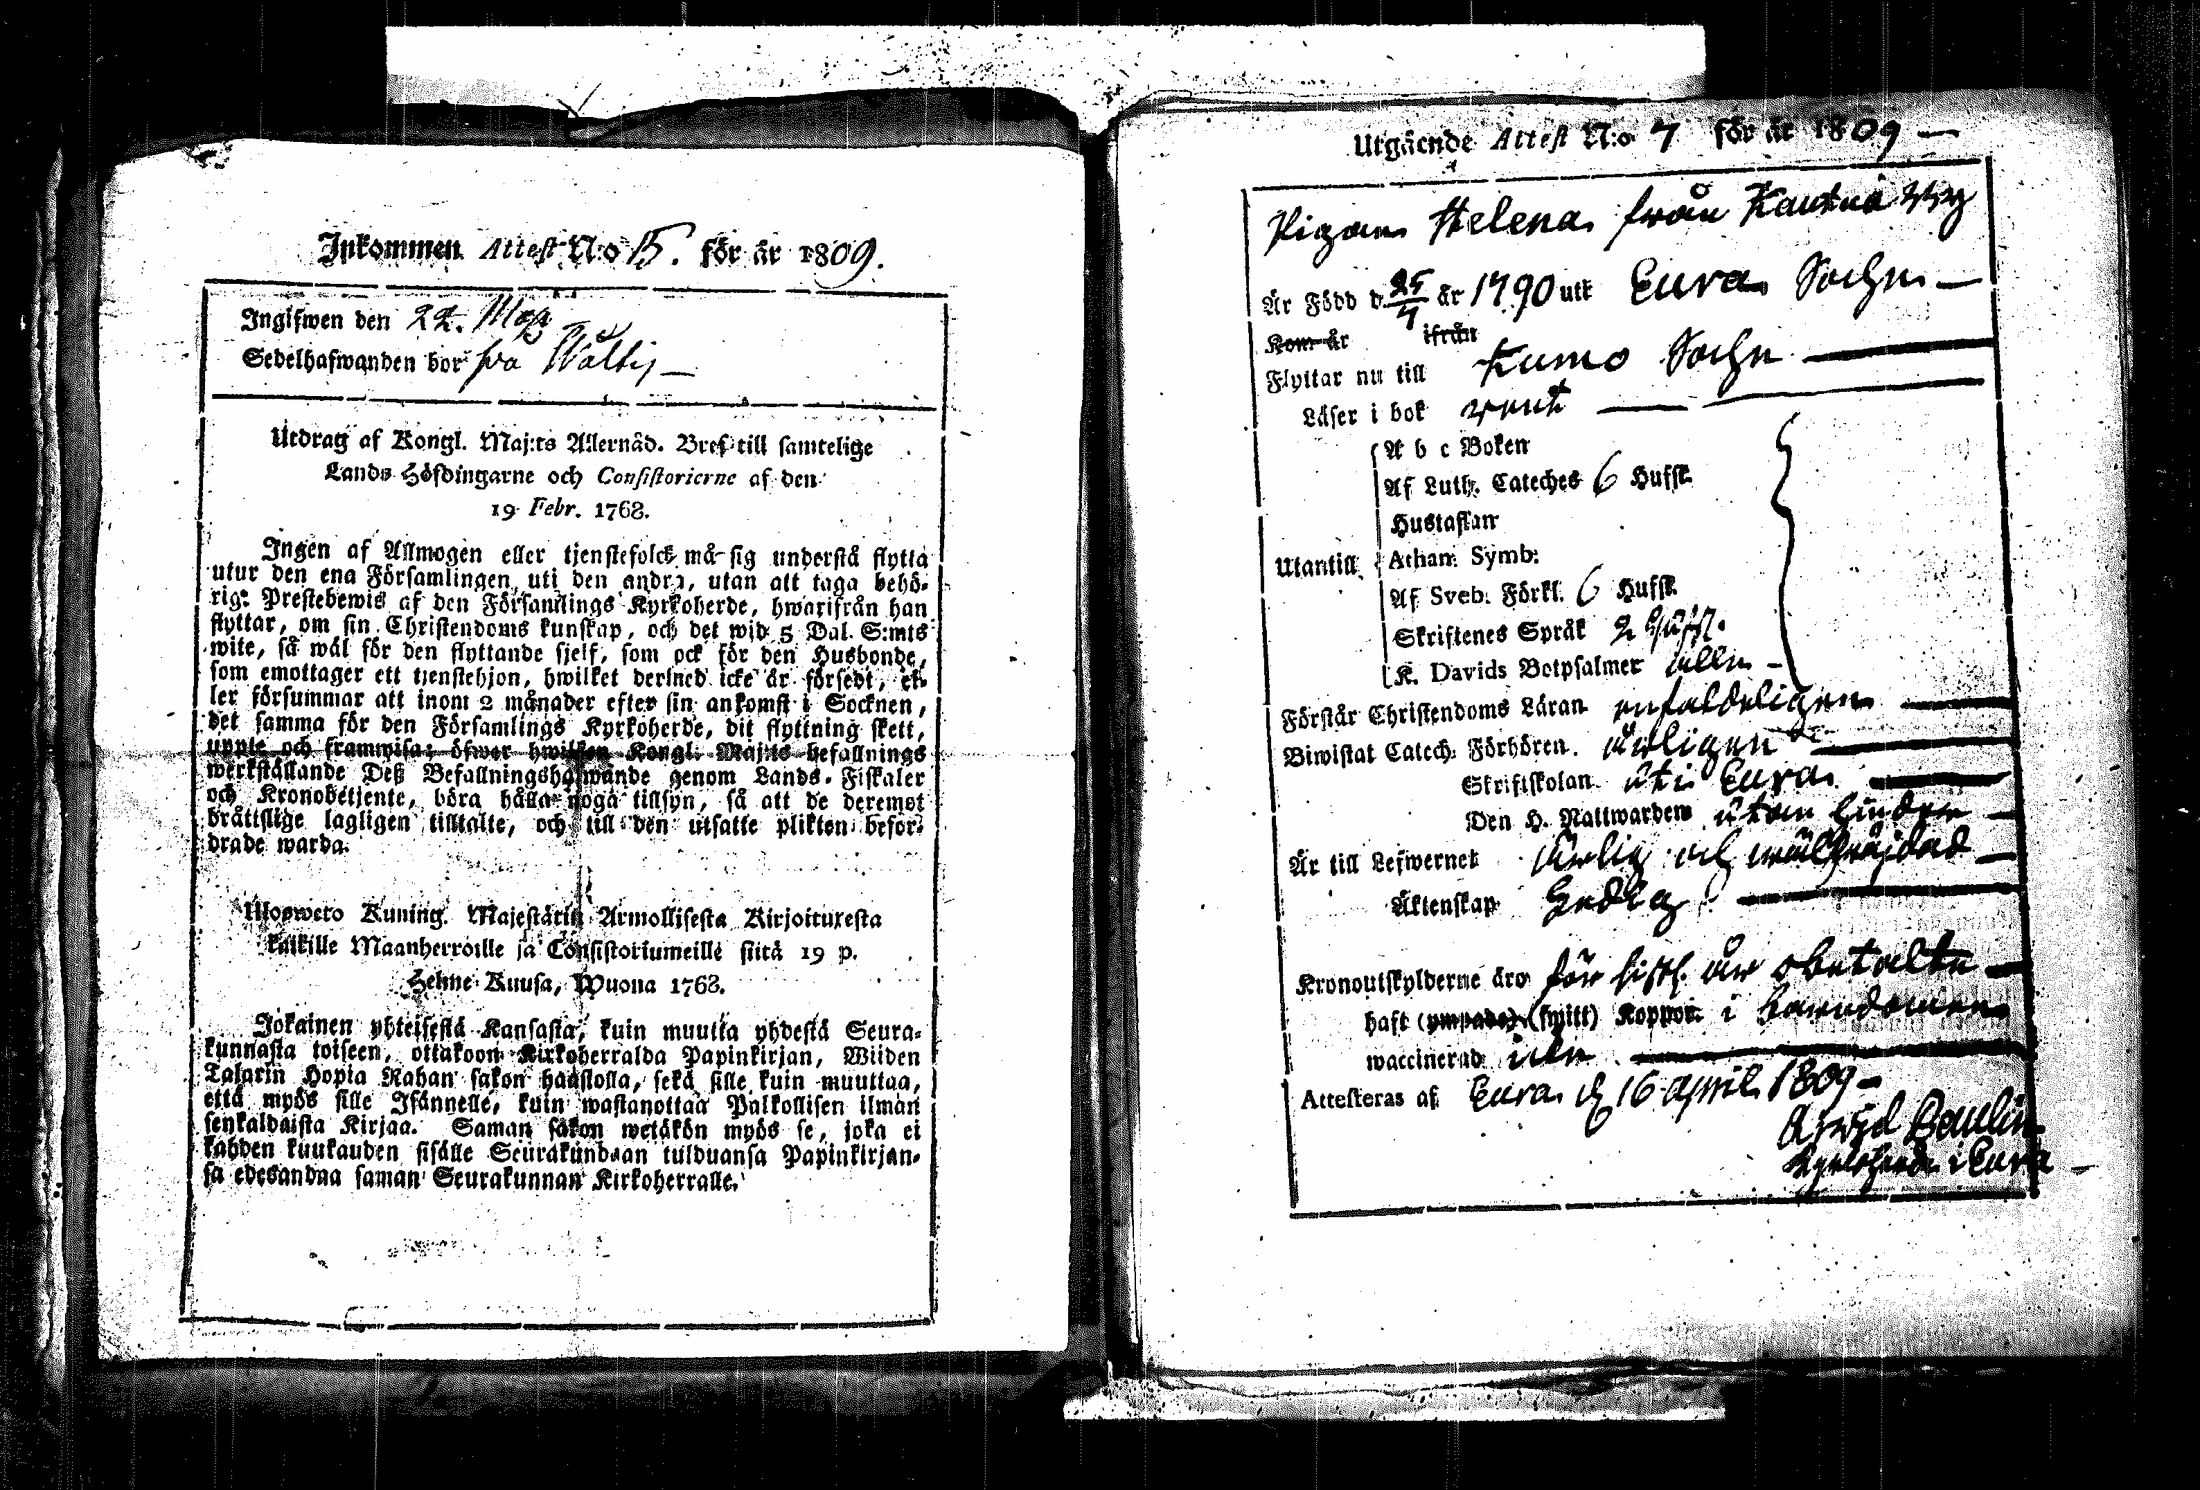 Inkommen Attest N:o 15. för år 1809.
Ingifwen den 22. Maji
Sedelhafwanden bor på
Utdrag af Kongl. Maj:ts Allernåd. Bref till samtelige
Lands Höfdingarne och Consistorierne af den
19 Febr. 1768.
Ingen af Allmogen eller tjenstefolck må sig understå flytta
utur den ena Församlingen uti den andra, utan att taga behö-
rigt Prestebewis af den Församlings Kyrkoherde, hwarifrån han
flyttar, om sin Christendoms kunskap, och det wid 5 Dal. S:mts
wite, så wäl för den flyttande sjelf, som ock för den Husbonde,
som emottager ett tjenstehjon, hwilket dermed icke är försedt, el-
ler försummar att inom 2 månader efter sin ankomst i Socknen,
det samma för den Församlings Kyrkoherde, dit flyttning skett,
uppte och framwisa: öfwer hwilken Kongl. Maj:ts befallnings
werkställande Deß Befallningshafwande genom Lands-Fiskaler
och Kronobetjente, böra hålla noga tillsyn, så att de deremot
bråttslige lagligen tilltalte, och till den utsatte plikten befor-
drade warda.
Ulosweto Kuning. Majestätin Armollisesta Kirjoituxesta
kaikille Maanherroille ja Consistoriumeille siitä 19 p.
Helme Kuusa, Wuona 1768.
Jokainen yhteisestä Kansasta, kuin muutta yhdestä Seura-
kunnasta toiseen, ottakoon Kirkoherralda Papinkirjan, Wiiden
Talarin Hopia Rahan sakon haastolla, sekä sille kuin muuttaa,
että myös sille Isännelle, kuin wastanottaa Palkollisen ilman
senkaldaista Kirjaa. Saman sakon wetäkön myös se, joka ei
kahden kuukauden sisälle Seurakundaan tulduansa Papinkirjan-
sa edesandna saman Seurakunnan Kirkoherralle.
Utgående Attest N:o 7 för år 1809
Pigan Helena från Kautua By
Är Född d. 25/7 år 1790 uti Eura Sochn
Kom år ifrån
Flyttar nu till Kumo Sochn
Läser i bok rent
A b c Boken
Af Luth. Cateches 6 Hufst.
Hustaflan
Utantill Athan. Symb:
Af Sveb. Förkl. 6 Hufst.
Skriftenes Språk 2 Hufst.
K. Davids Botpsalmer alla
Förstår Christendoms Läran enfaldeligen
Biwistat Catech. Förhören årligen
Skriftskolan uti Eura
Den H. Nattwarden utan hinder
Är till Lefwernet ärlig och wälfräjdad
Äktenskap ledig
Kronoutskylderne äro för sistl. år obetalte
haft (ympade) (switt) Koppor i barndomen
waccinerad icke
Attesteras af Eura d. 16 April 1809
Arwid Paulin
Kyrkoherde i Eura